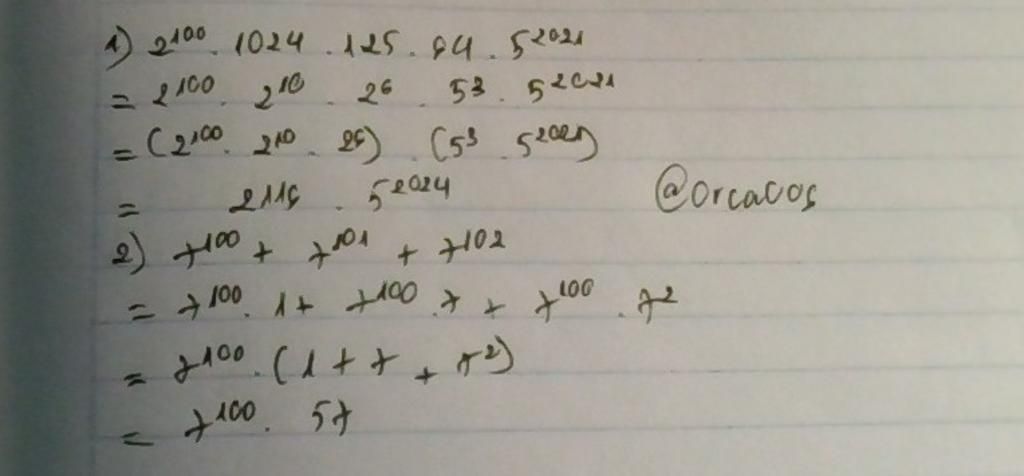 1) 2^100 . 1024 . 125 . 64 . 5^2021
= 2^100 . 2^10 . 2^6 . 5^3 . 5^2021
= (2^100 . 2^10 . 2^6) . (5^3 . 5^2021)
= 2^116 . 5^2024
@orcacos
2) 7^100 + 7^101 + 7^102
= 7^100 . 1 + 7^100 . 7 + 7^100 . 7^2
= 7^100 . (1 + 7 + 7^2)
= 7^100 . 57